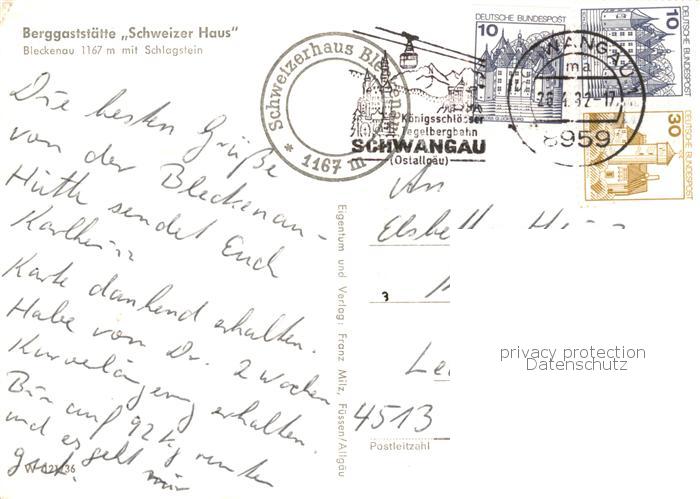 Berggaststätte „Schweizer Haus"
Bleckenau 1167 m mit Schlagstein
Die besten Grüße
von der Bleckenau-
Hütte sendet Euch
Karlheinz
Karte dankend erhalten.
Habe von Dr. 2 Wochen
Kurverlängerung erhalten.
Bin auf 92 kg runter
und es geht mir
gut.
W 021/36
Schweizerhaus Bleckenau
* 1167 m
Königsschlösser
Tegelbergbahn
SCHWANGAU
(Ostallgäu)
DEUTSCHE BUNDESPOST
10
DEUTSCHE BUNDESPOST
10
DEUTSCHE BUNDESPOST
30
WANGAU
ma
4.82-17
8959
Eigentum und Verlag: Franz Milz, Füssen/Allgäu
An
3
4513
Postleitzahl
privacy protection
Datenschutz